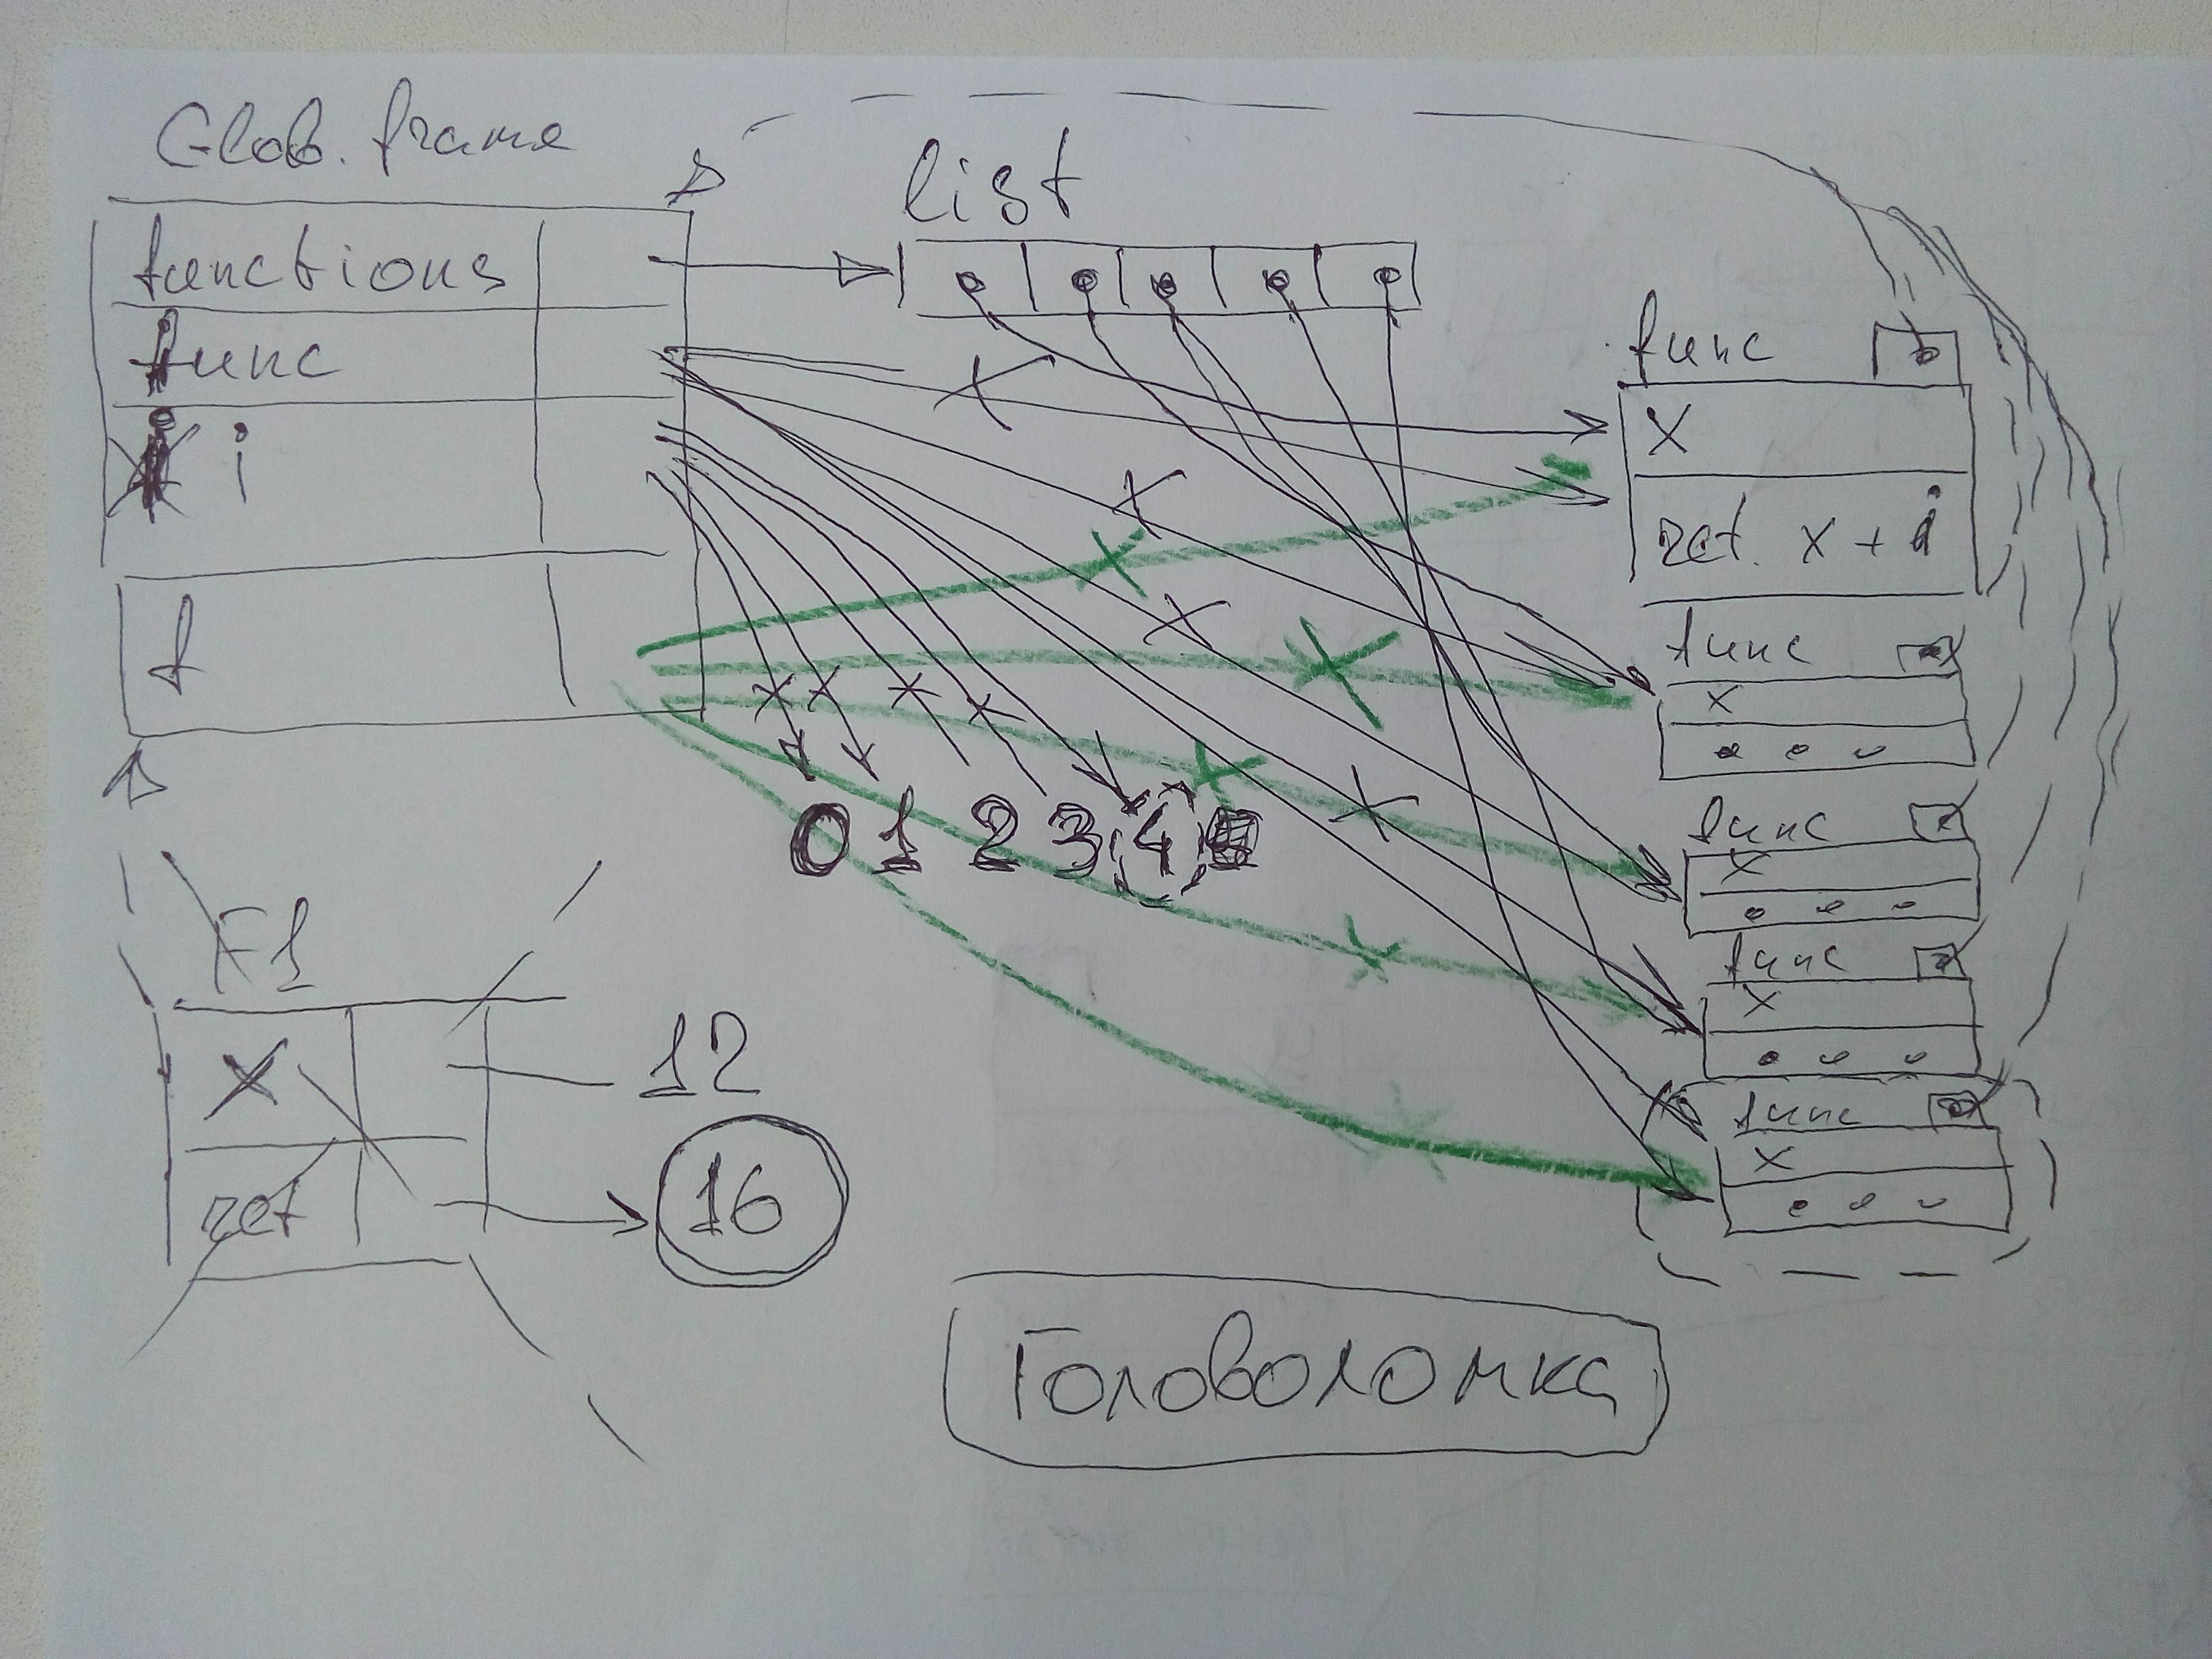 Glob. frame
list
functions
func
i
f
func
x
ret. x + i
func
x
func
x
func
x
func
x
0 1 2 3 4
F1
x 12
ret 16
Головоломка